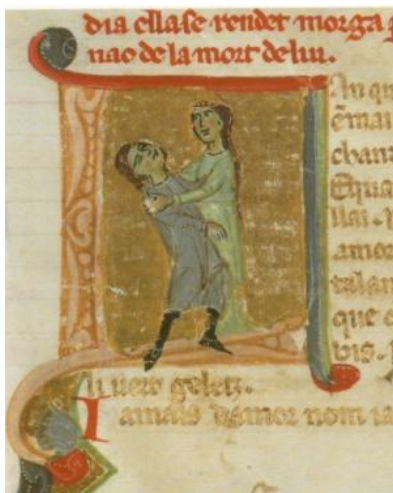 dia ellase rendet morga
nac dela mort de lui.
An qu
ēmai
chant
Equa
llai.
amor
talan
que
vis.
uers geletz.
I amais damor nom ia